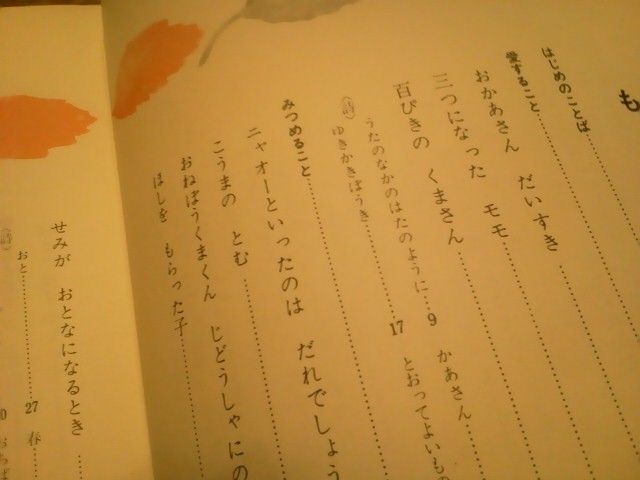 も
はじめのことば
愛すること
おかあさん だいすき
三つになった モモ
百ぴきの くまさん
(詩)
うたのなかのはたのように 9 かあさん
ゆきかきぼうき 17 とおってよいもの
みつめること
ニャオーといったのは だれでしょう
こうまの とむ
おねぼうくまくん じどうしゃにの
ほしを もらった子
せみが おとなになるとき
(詩)
おと 27 春
0 おちば